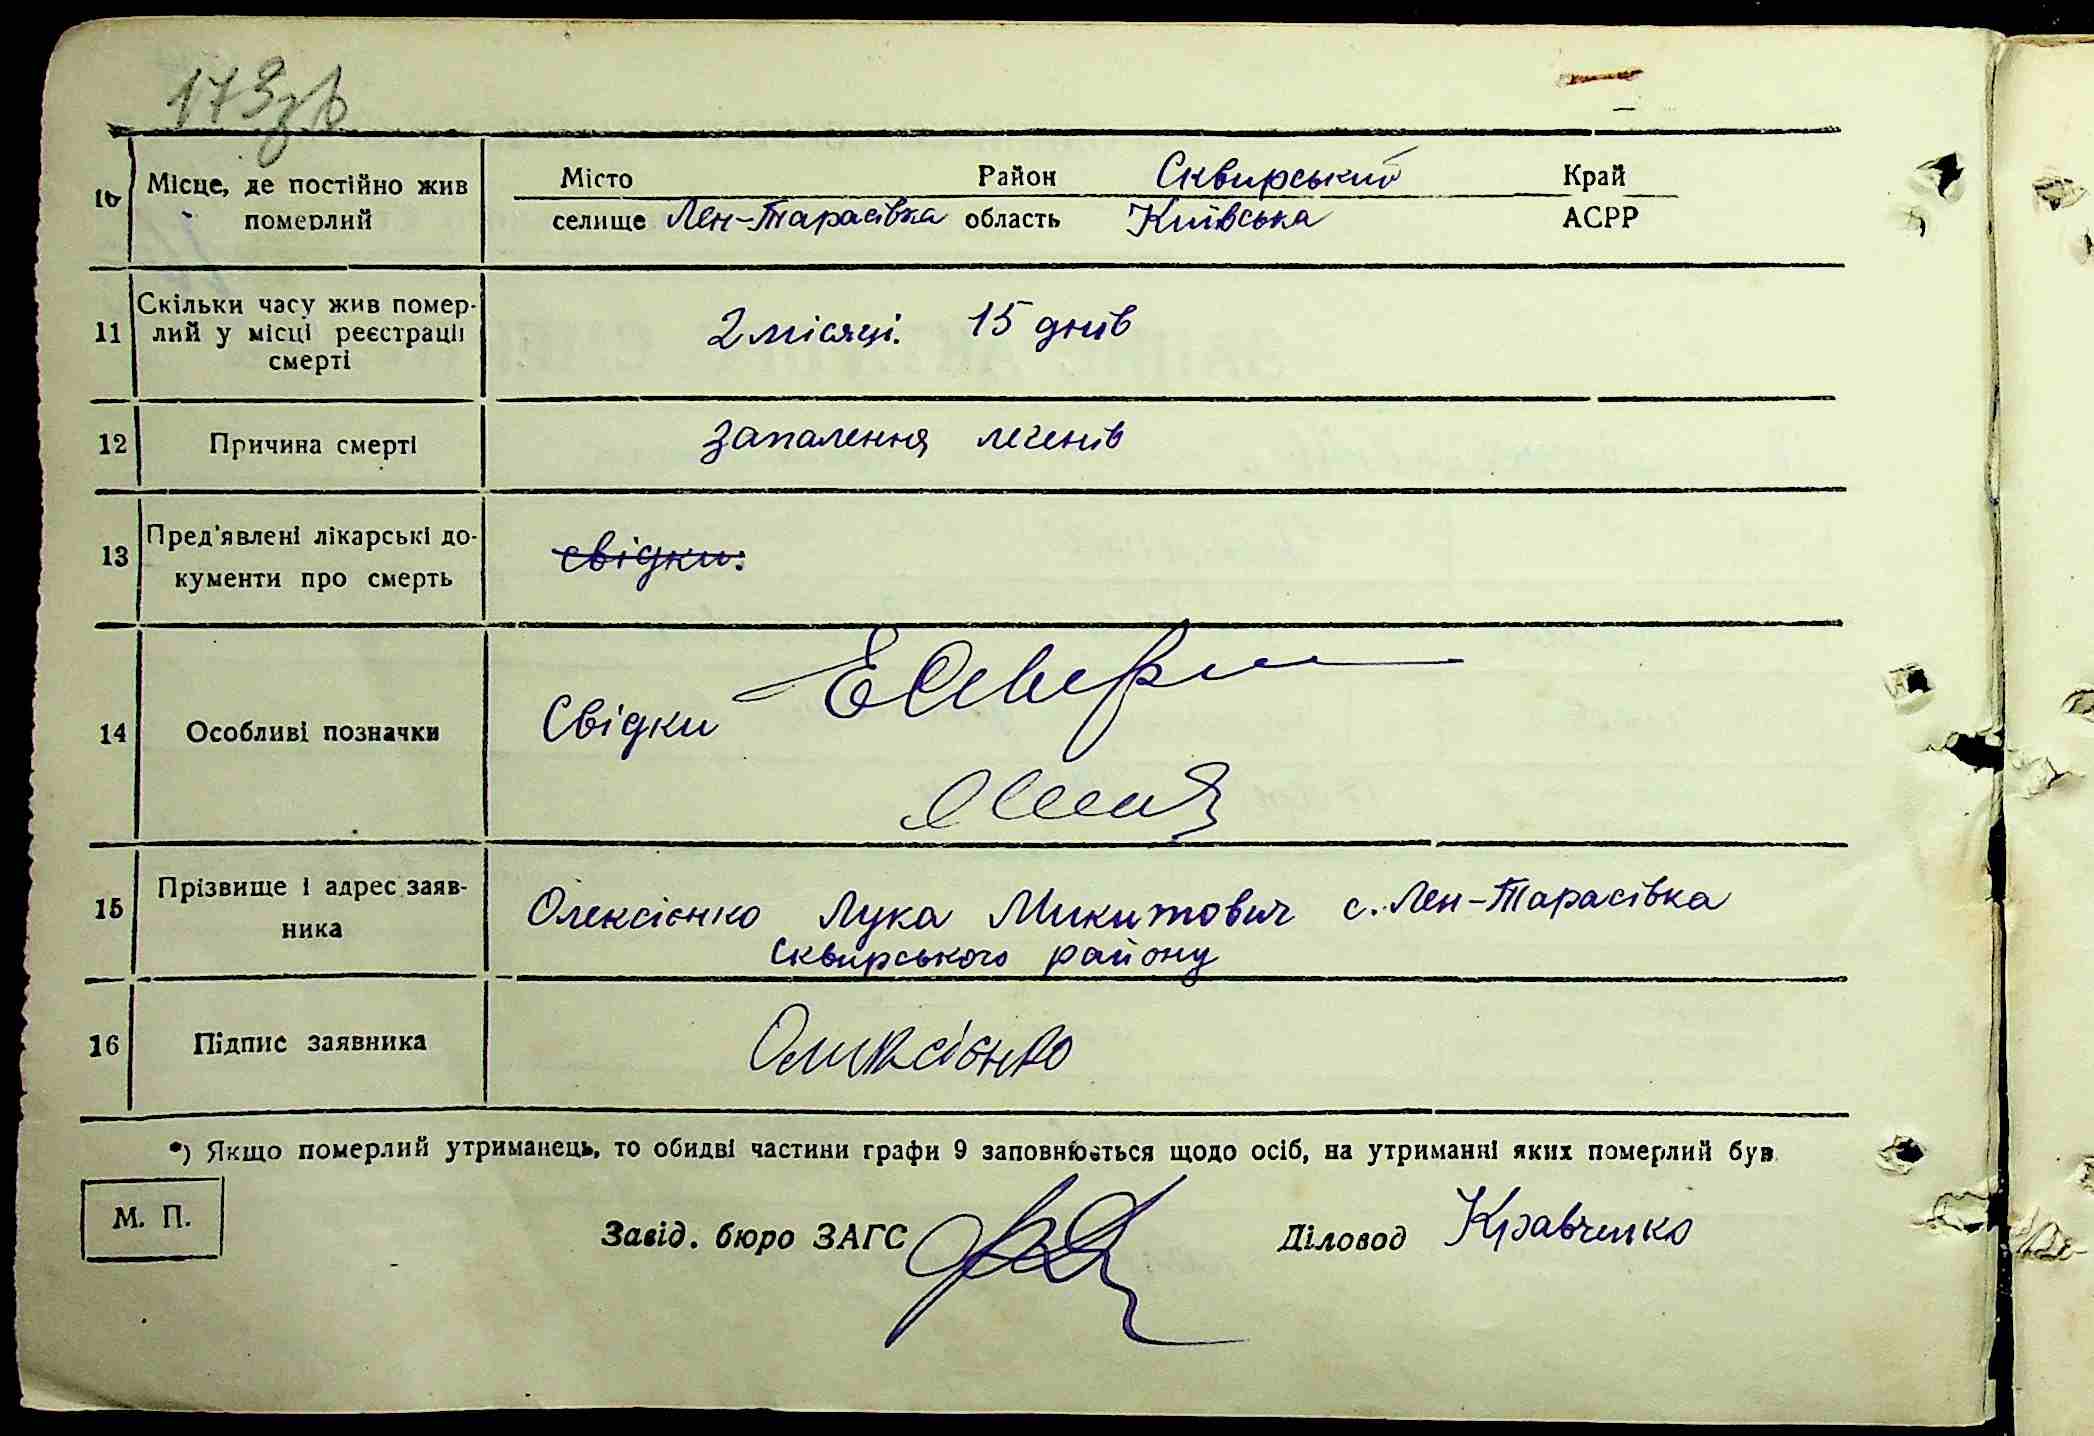 173зв
10 Місце, де постійно жив померлий
Місто Район Сквирський Край
селище Лен-Тарасівка область Київська АСРР
11 Скільки часу жив помер-
лий у місці реєстрації
смерті
2 місяці. 15 днів
12 Причина смерті запалення легенів
13 Пред'явлені лікарські до-
кументи про смерть
свідки.
14 Особливі позначки Свідки
15 Прізвище і адрес заяв-
ника
Олексієнко Лука Микитович с. Лен-Тарасівка
Сквирського району
16 Підпис заявника Оликсієнко
*) Якщо померлий утриманець, то обидві частини графи 9 заповнюється щодо осіб, на утриманні яких померлий був
М. П.
Завід. бюро ЗАГС Діловод Кравченко